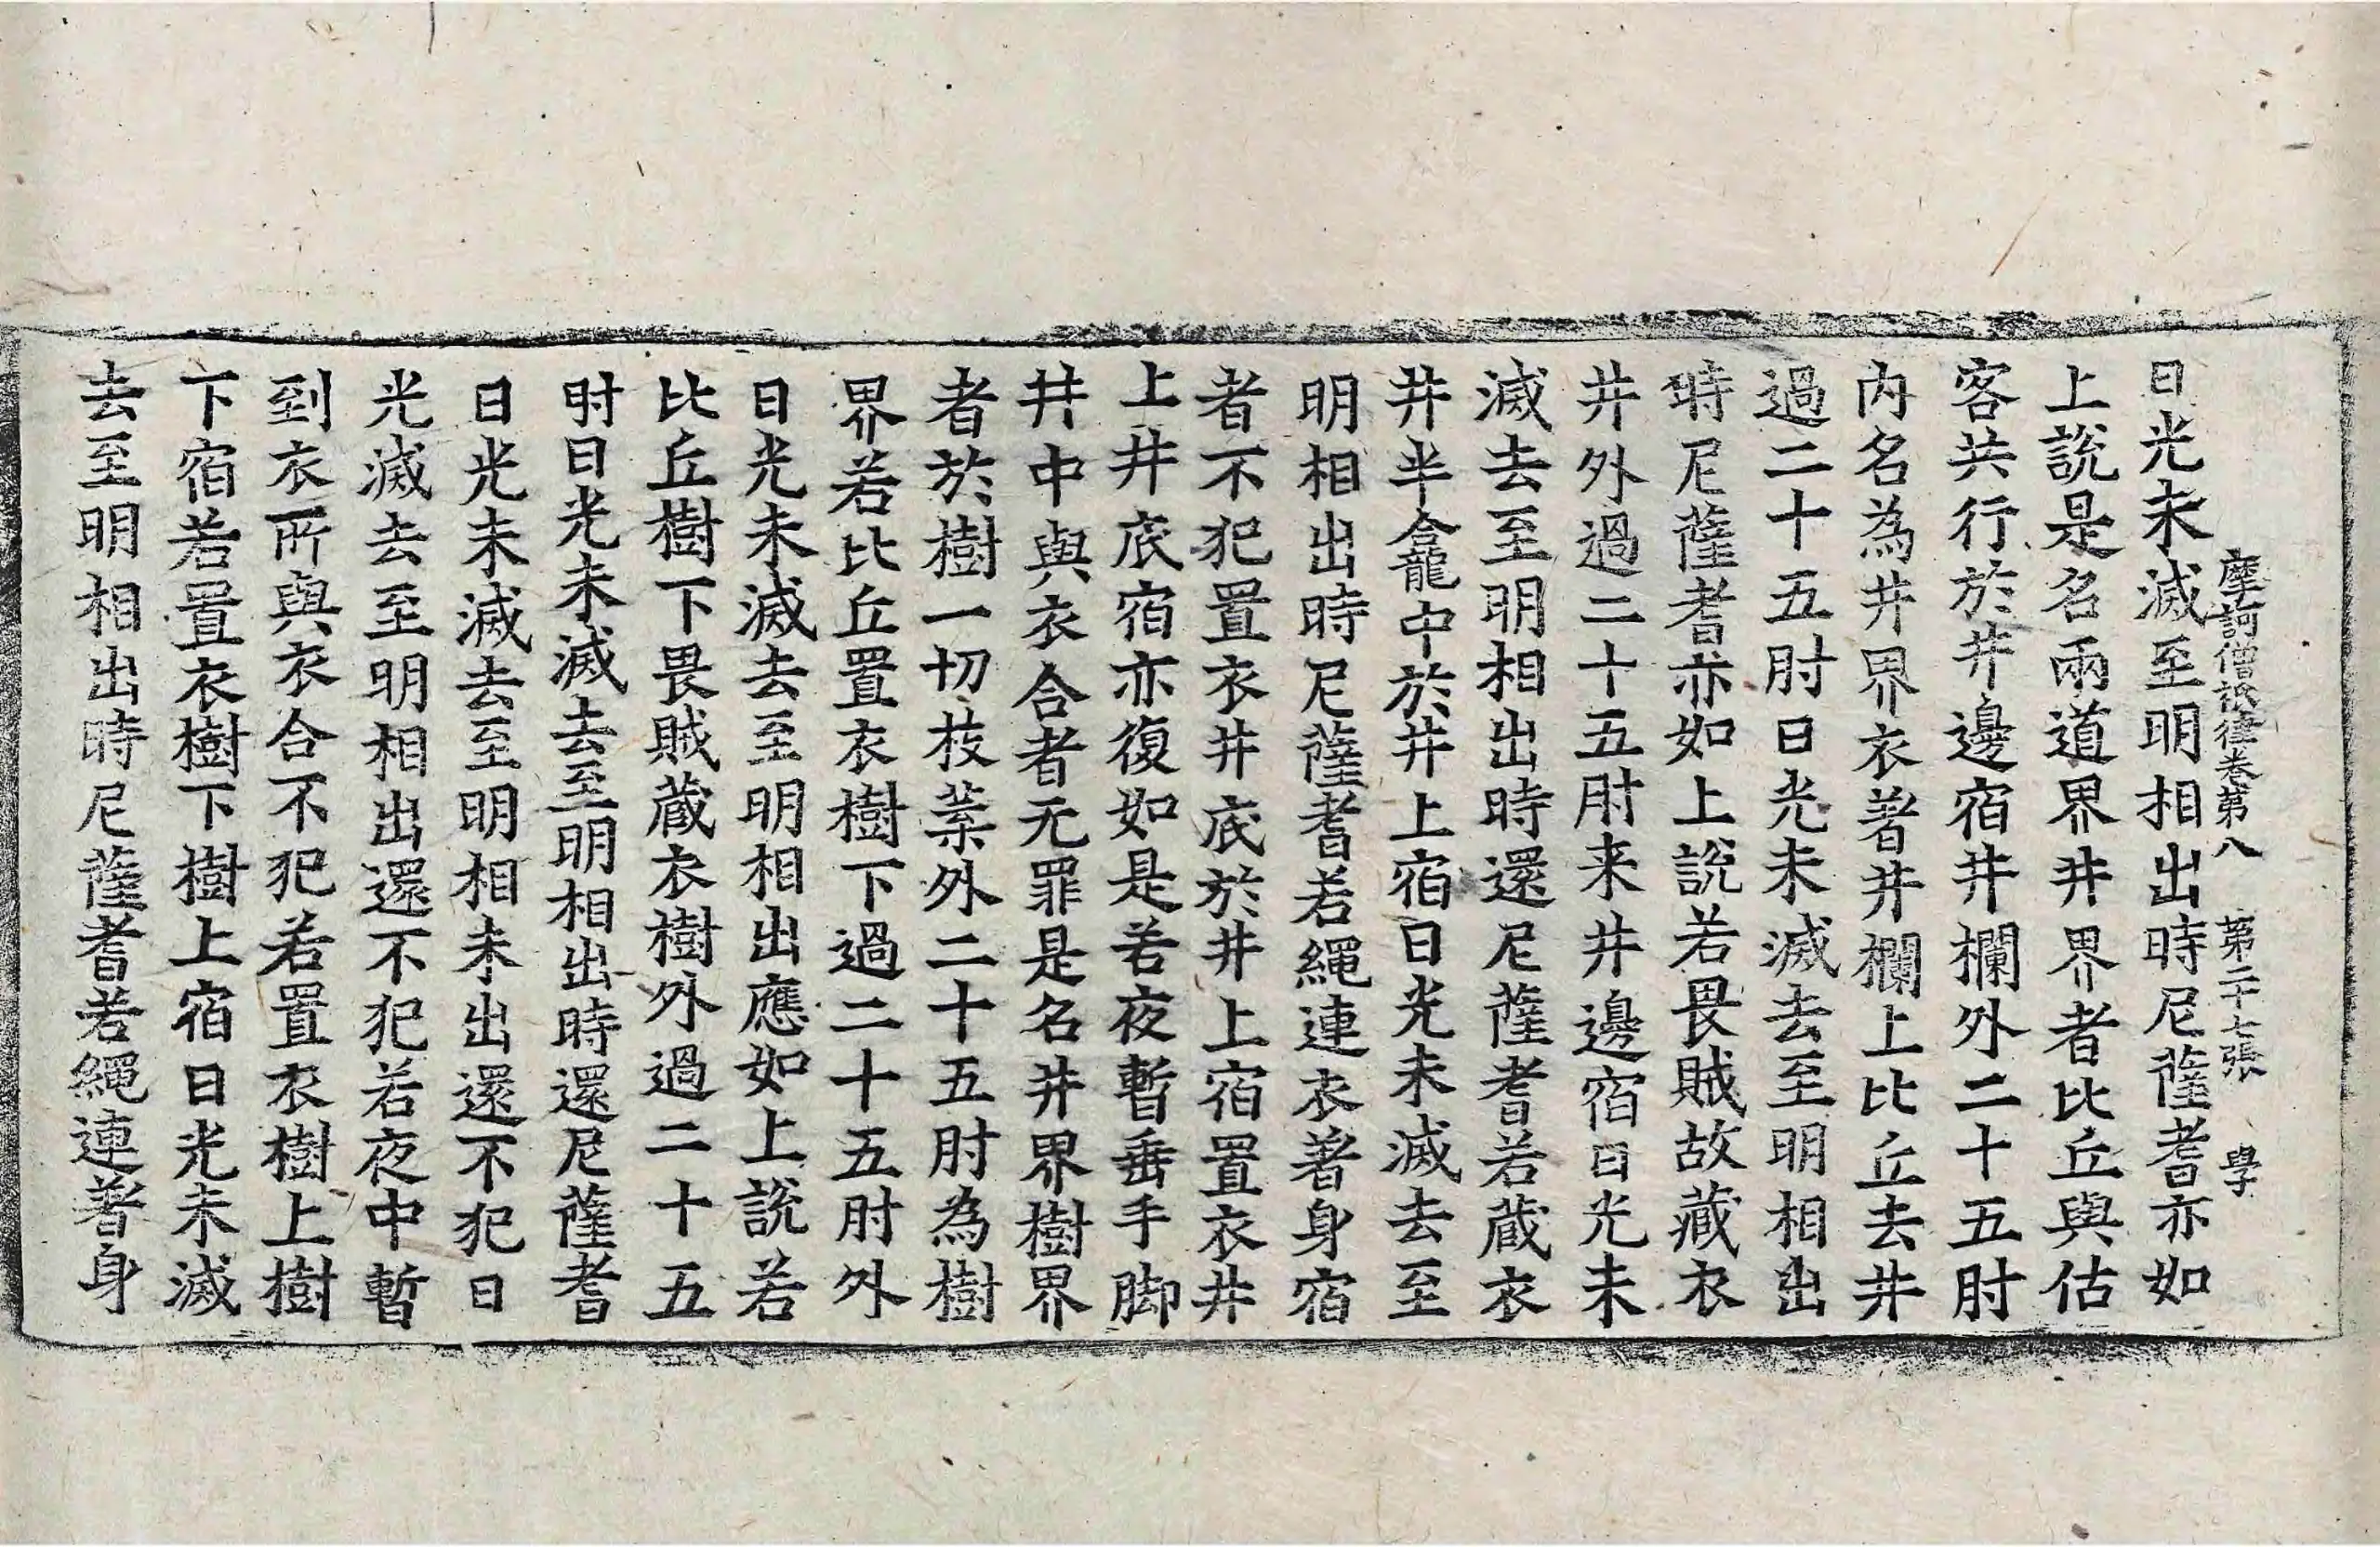 摩訶僧祇律卷第八 第二十七張 學
日光未滅至明相出時尼薩耆亦如
上說是名兩道界井界者比丘與估
客共行於井邊宿井欄外二十五肘
內名為井界衣著井欄上比丘去井
過二十五肘日光未滅去至明相出
時尼薩耆亦如上說若畏賊故藏衣
井外過二十五肘来井邊宿日光未
滅去至明相出時還尼薩耆若蔵衣
井半龕中於井上宿日光未滅去至
明相出時尼薩耆若繩連衣著身宿
者不犯置衣井底於井上宿置衣井
上井底宿亦復如是若夜暫垂手脚
井中與衣合者无罪是名井界樹界
者於樹一切枝葉外二十五肘為樹
界若比丘置衣樹下過二十五肘外
日光未滅去至明相出應如上說若
比丘樹下畏賊蔵衣樹外過二十五
肘日光未滅去至明相出時還尼薩耆
日光未滅去至明相未出還不犯日
光滅去至明相出還不犯若夜中暫
到衣所與衣合不犯若置衣樹上樹
下宿若置衣樹下樹上宿日光未滅
去至明相出時尼薩耆若繩連著身